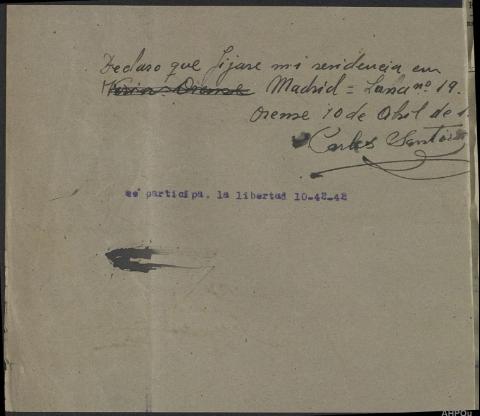 Declaro que fijare mi residencia en
Madrid = Luna nº 19.
Orense 10 de Abril de 1
Carlos Santos
se participa. la libertad 10-48-48
AHPOu